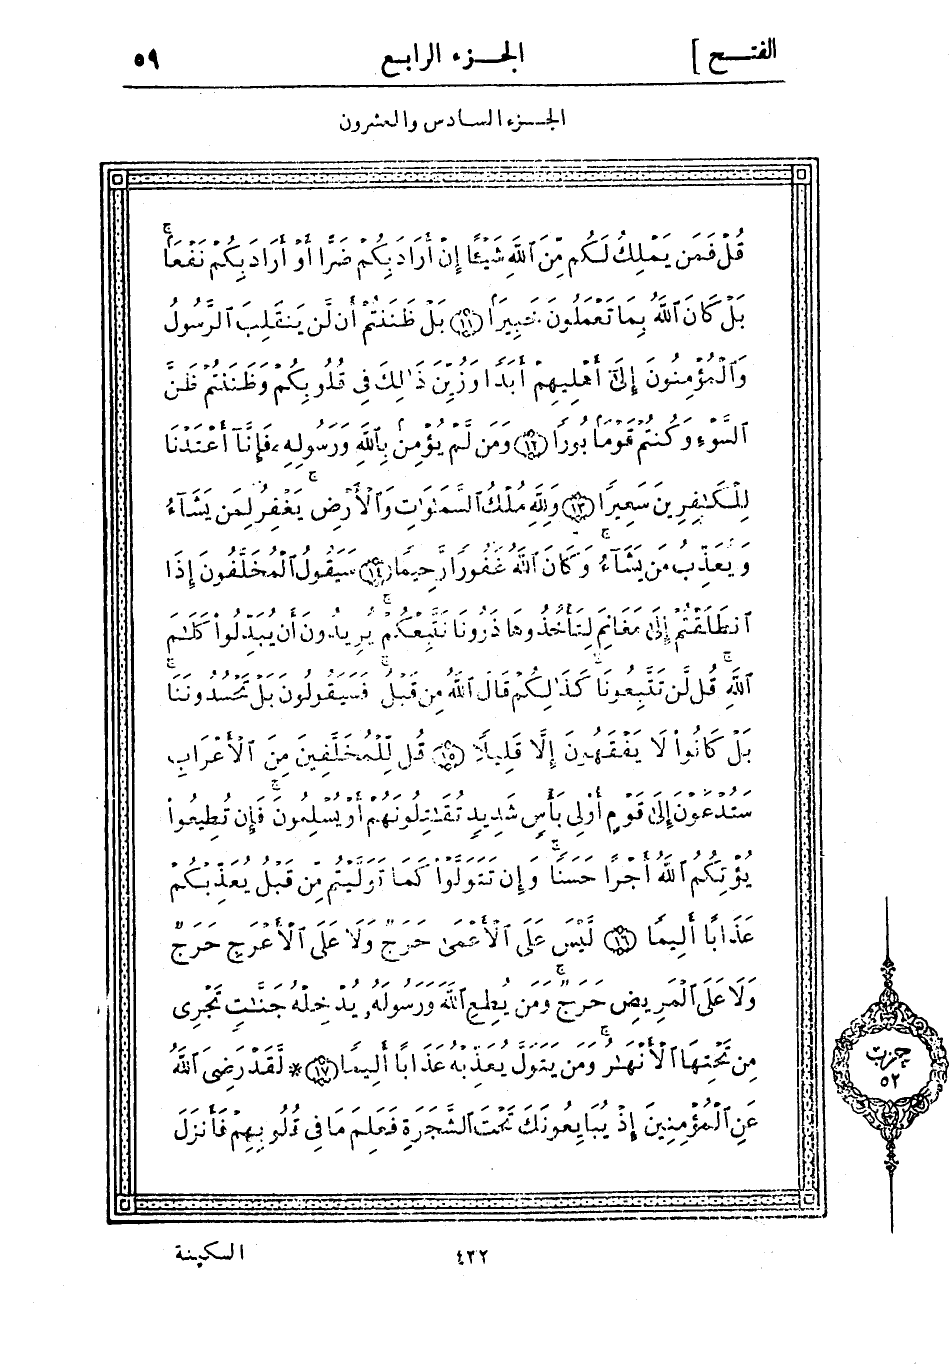 الفتح ]
الجزء الرابع
٥٩
الجزء السادس والعشرون
قُلْ فَمَن يَمْلِكُ لَكُم مِّنَ ٱللَّهِ شَيْـًٔا إِنْ أَرَادَ بِكُمْ ضَرًّا أَوْ أَرَادَ بِكُمْ نَفْعَۢا ۚ
بَلْ كَانَ ٱللَّهُ بِمَا تَعْمَلُونَ خَبِيرَۢا ﴿١١﴾ بَلْ ظَنَنتُمْ أَن لَّن يَنقَلِبَ ٱلرَّسُولُ
وَٱلْمُؤْمِنُونَ إِلَىٰٓ أَهْلِيهِمْ أَبَدًا وَزُيِّنَ ذَٰلِكَ فِى قُلُوبِكُمْ وَظَنَنتُمْ ظَنَّ
ٱلسَّوْءِ وَكُنتُمْ قَوْمَۢا بُورًا ﴿١٢﴾ وَمَن لَّمْ يُؤْمِنۢ بِٱللَّهِ وَرَسُولِهِۦ فَإِنَّآ أَعْتَدْنَا
لِلْكَٰفِرِينَ سَعِيرًا ﴿١٣﴾ وَلِلَّهِ مُلْكُ ٱلسَّمَٰوَٰتِ وَٱلْأَرْضِ ۚ يَغْفِرُ لِمَن يَشَآءُ
وَيُعَذِّبُ مَن يَشَآءُ ۚ وَكَانَ ٱللَّهُ غَفُورًا رَّحِيمًا ﴿١٤﴾ سَيَقُولُ ٱلْمُخَلَّفُونَ إِذَا
ٱنطَلَقْتُمْ إِلَىٰ مَغَانِمَ لِتَأْخُذُوهَا ذَرُونَا نَتَّبِعْكُمْ ۖ يُرِيدُونَ أَن يُبَدِّلُوا۟ كَلَٰمَ
ٱللَّهِ ۚ قُل لَّن تَتَّبِعُونَا كَذَٰلِكُمْ قَالَ ٱللَّهُ مِن قَبْلُ ۖ فَسَيَقُولُونَ بَلْ تَحْسُدُونَنَا ۚ
بَلْ كَانُوا۟ لَا يَفْقَهُونَ إِلَّا قَلِيلًا ﴿١٥﴾ قُل لِّلْمُخَلَّفِينَ مِنَ ٱلْأَعْرَابِ
سَتُدْعَوْنَ إِلَىٰ قَوْمٍ أُو۟لِى بَأْسٍ شَدِيدٍ تُقَٰتِلُونَهُمْ أَوْ يُسْلِمُونَ ۖ فَإِن تُطِيعُوا۟
يُؤْتِكُمُ ٱللَّهُ أَجْرًا حَسَنًا ۖ وَإِن تَتَوَلَّوْا۟ كَمَا تَوَلَّيْتُم مِّن قَبْلُ يُعَذِّبْكُمْ
عَذَابًا أَلِيمًا ﴿١٦﴾ لَّيْسَ عَلَى ٱلْأَعْمَىٰ حَرَجٌ وَلَا عَلَى ٱلْأَعْرَجِ حَرَجٌ
وَلَا عَلَى ٱلْمَرِيضِ حَرَجٌ ۗ وَمَن يُطِعِ ٱللَّهَ وَرَسُولَهُۥ يُدْخِلْهُ جَنَّٰتٍ تَجْرِى
مِن تَحْتِهَا ٱلْأَنْهَٰرُ ۖ وَمَن يَتَوَلَّ يُعَذِّبْهُ عَذَابًا أَلِيمًا ﴿١٧﴾ * لَّقَدْ رَضِىَ ٱللَّهُ
عَنِ ٱلْمُؤْمِنِينَ إِذْ يُبَايِعُونَكَ تَحْتَ ٱلشَّجَرَةِ فَعَلِمَ مَا فِى قُلُوبِهِمْ فَأَنزَلَ
حزب
٥٢
السكينة
٤٢٢